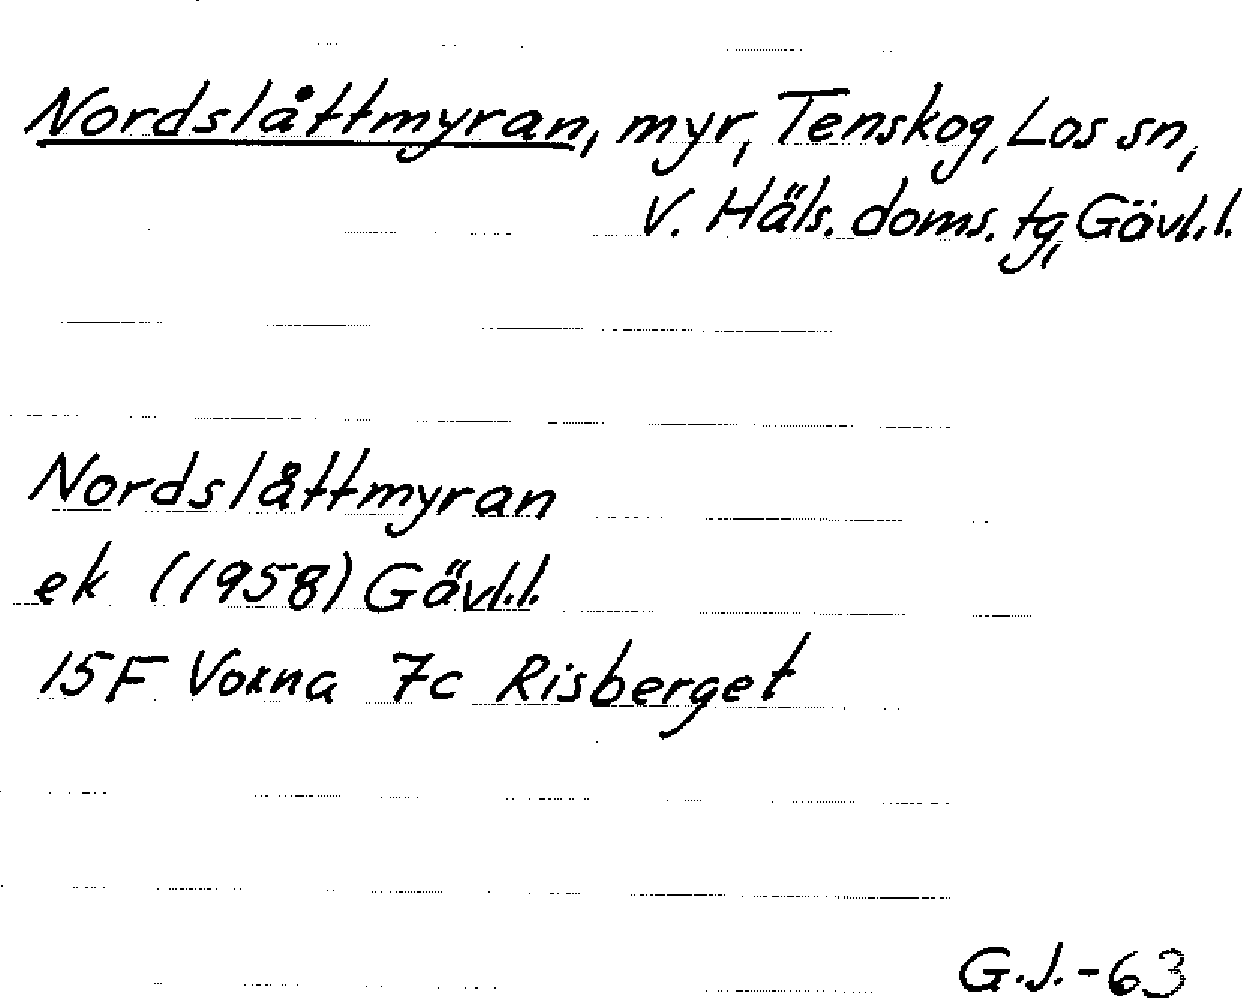 Nordslåttmyran, myr, Tenskog, Los sn,
V. Häls. doms. tg, Gävl.l.
Nordslåttmyran
ek (1958) Gävl.l.
15F Voxna 7c Risberget
G.J.-63